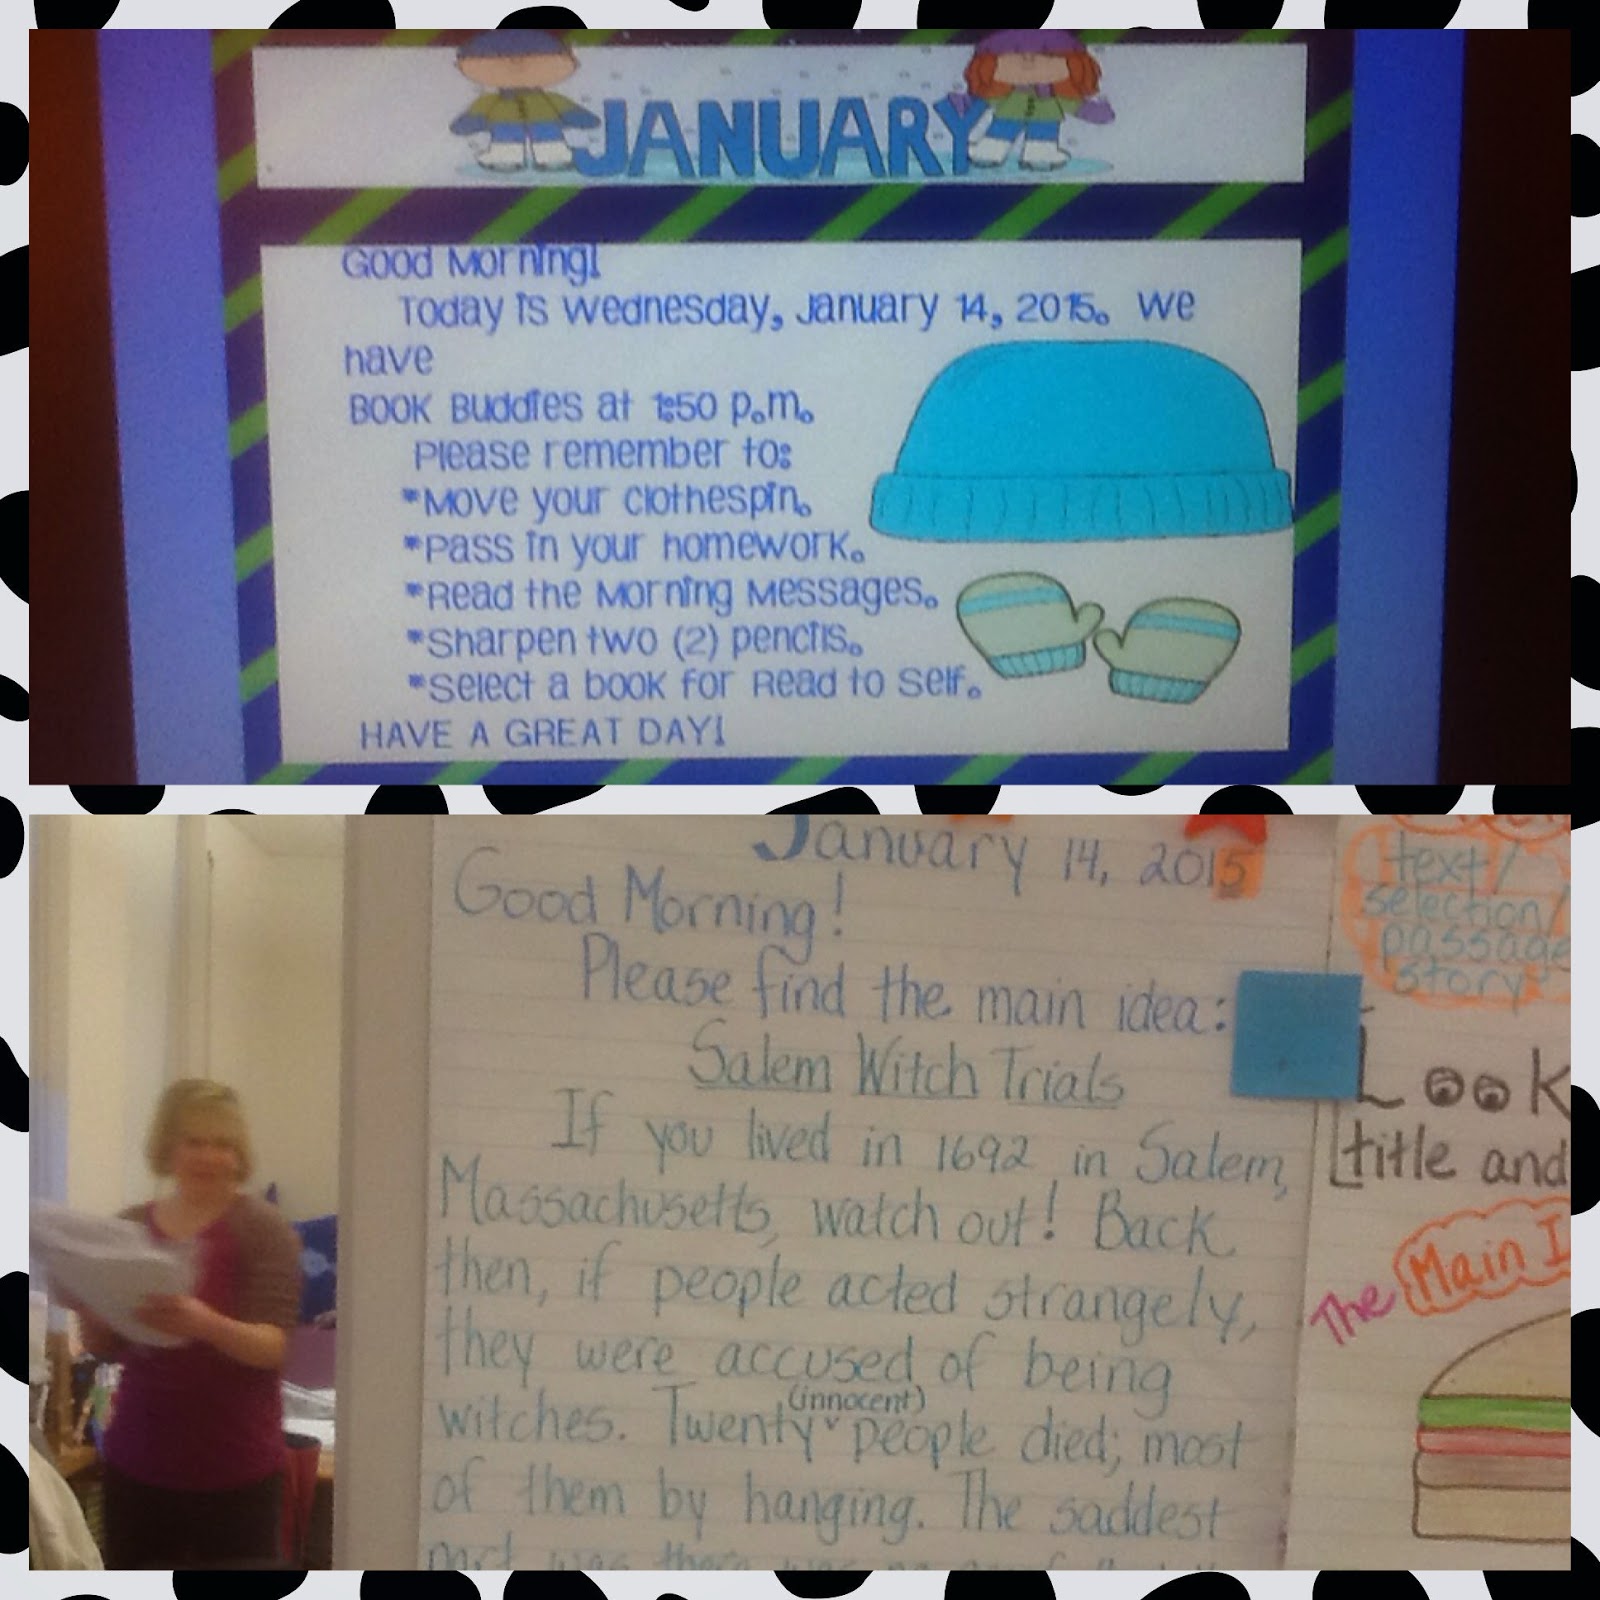 JANUARY
Good Morning!
Today is Wednesday, January 14, 2015. We
have
Book Buddies at 1:50 p.m.
Please remember to:
*Move your clothespin.
*Pass in your homework.
*Read the Morning Messages.
*Sharpen two (2) pencils.
*Select a book for Read to Self.
HAVE A GREAT DAY!
January 14, 2015
Good Morning!
Please find the main idea:
Salem Witch Trials
If you lived in 1692 in Salem,
Massachusetts, watch out! Back
then, if people acted strangely,
they were accused of being
(innocent)
witches. Twenty ˅ people died; most
of them by hanging. The saddest
part was there was
text/
selection/
passage
story
Look
title and
The Main I